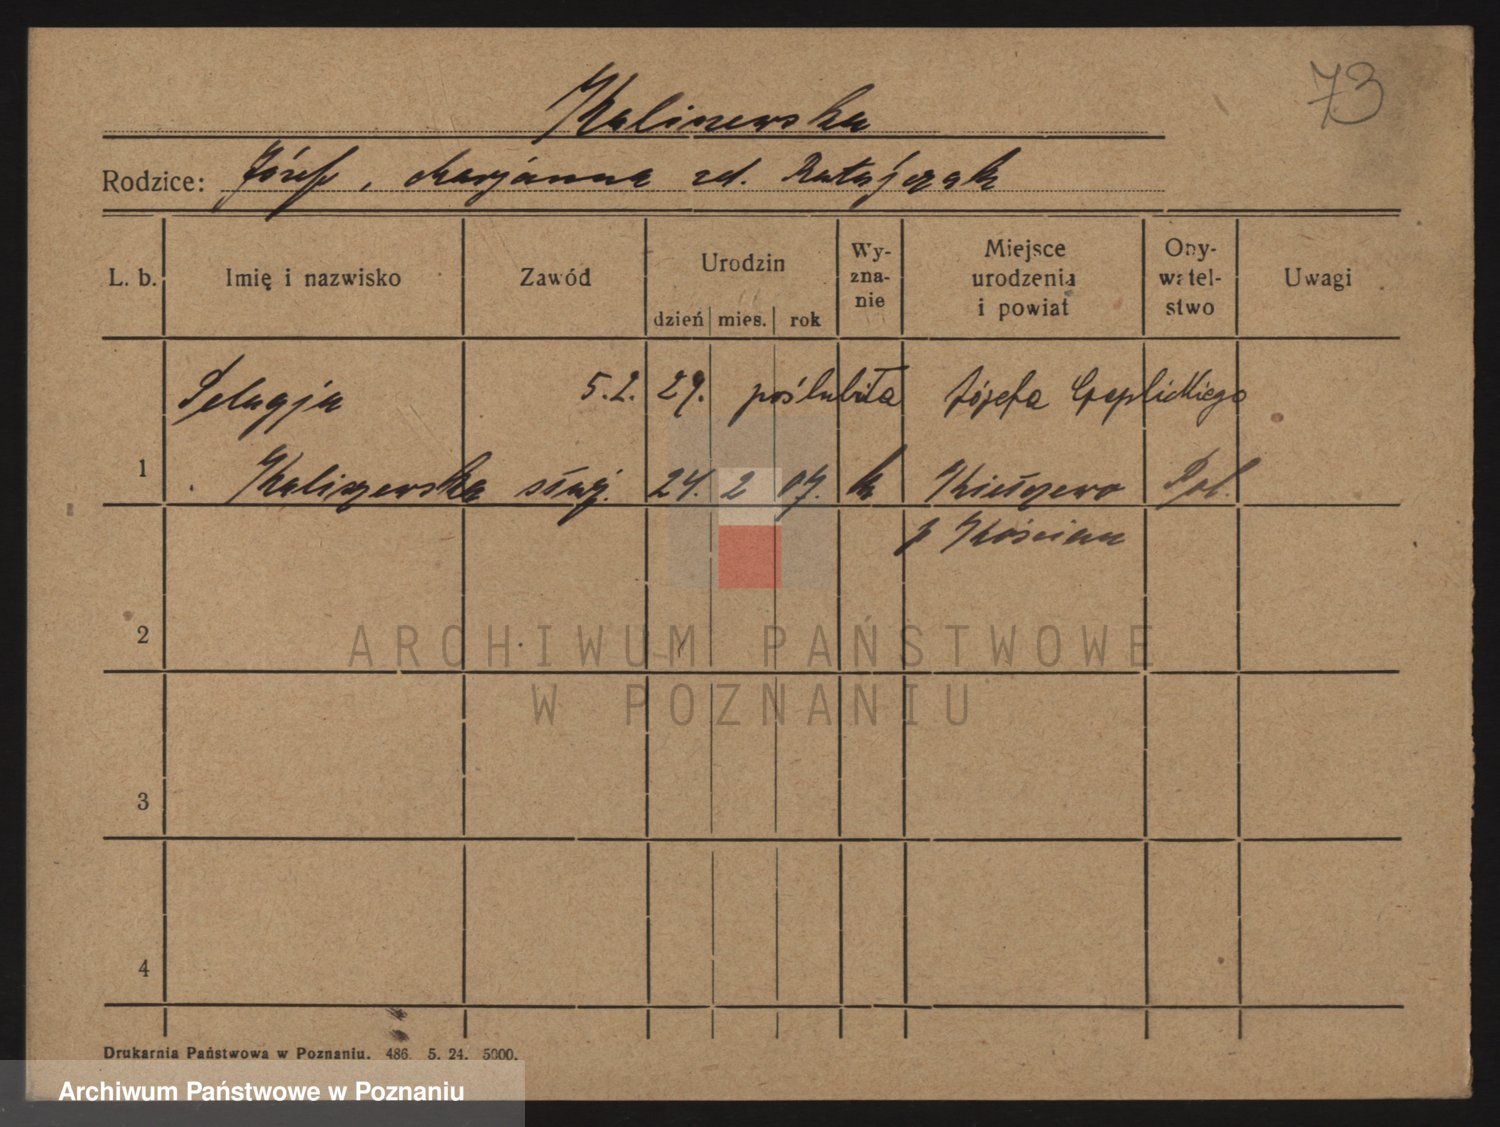 73
Kaliszewska
Rodzice: Józef, Marjanna zd. Ratajczak
L. b. Imię i nazwisko Zawód Urodzin dzień mies. rok Wy-zna-nie Miejsce urodzenia i powiat Oby-watel-stwo Uwagi
Pelagja 5.2. 29. poślubiła Józefa Czeplickiego
1 Kaliszewska służ. 24. 2 07. k Kiełczewo Pol.
p Kościan
2
ARCHIWUM PAŃSTWOWE
W POZNANIU
3
4
Drukarnia Państwowa w Poznaniu. 486. 5. 24. 5000.
Archiwum Państwowe w Poznaniu